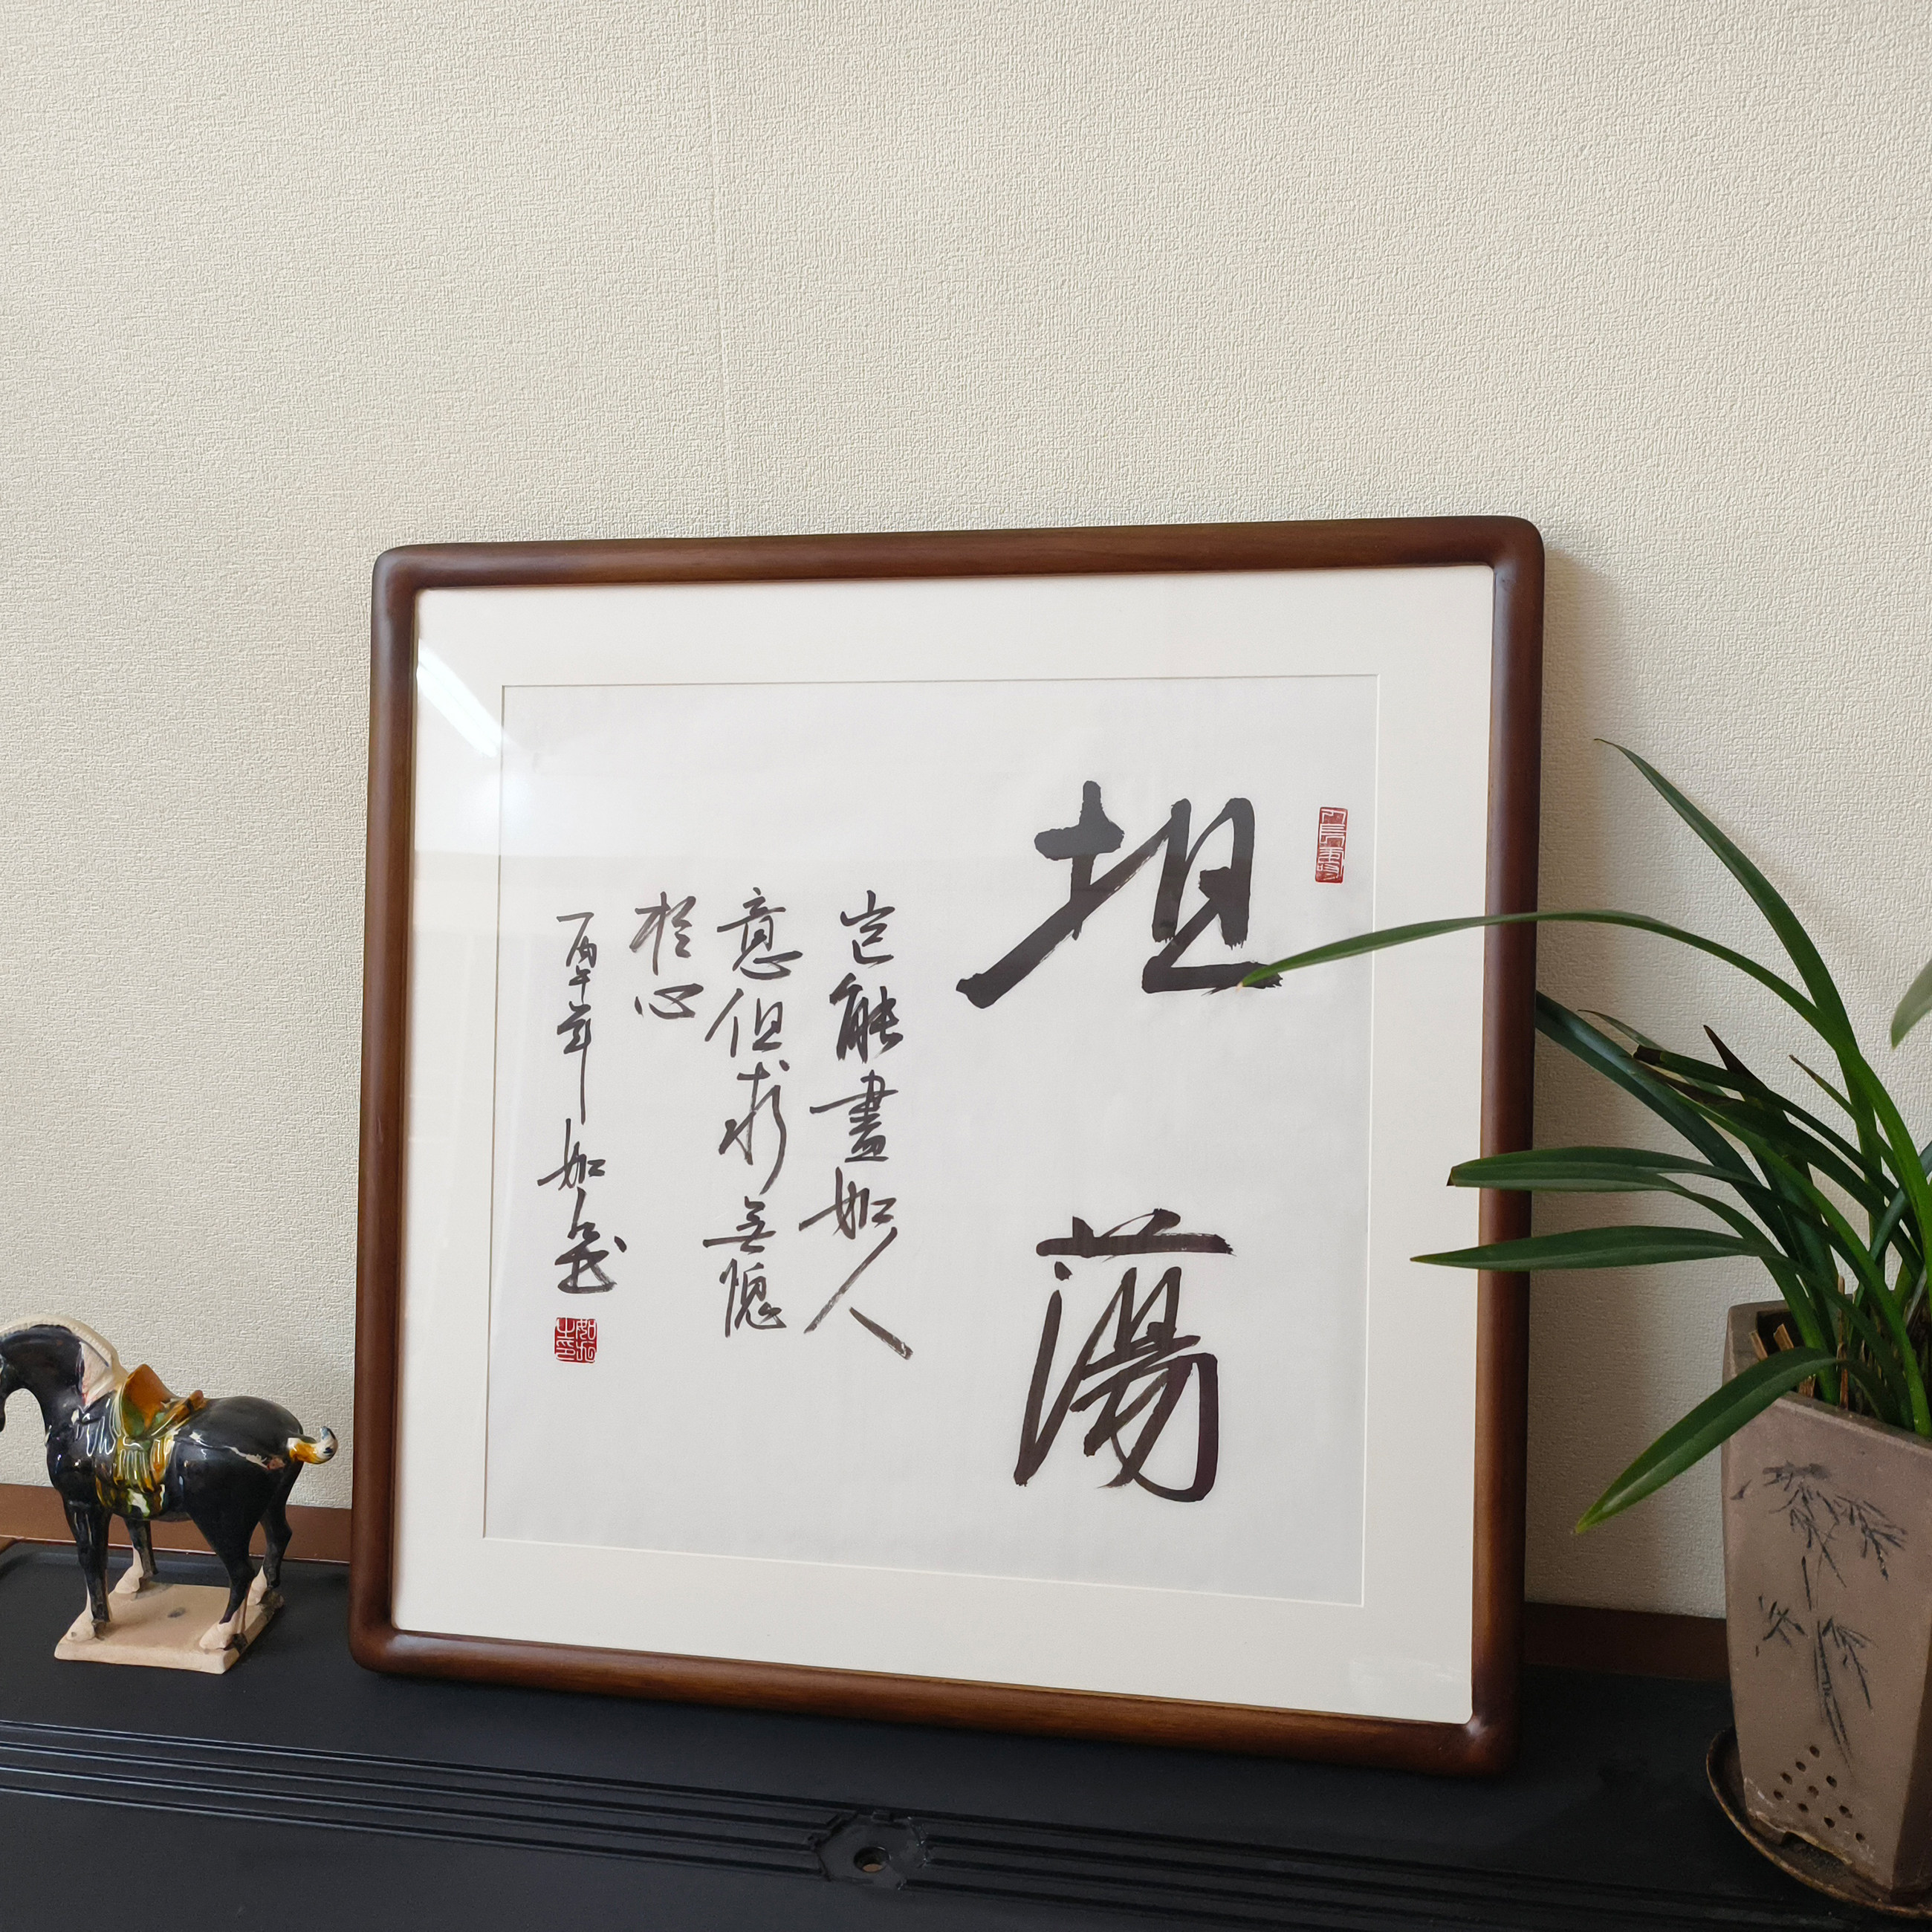 坦蕩
豈能盡如人
意但求無愧
於心
丙午年如